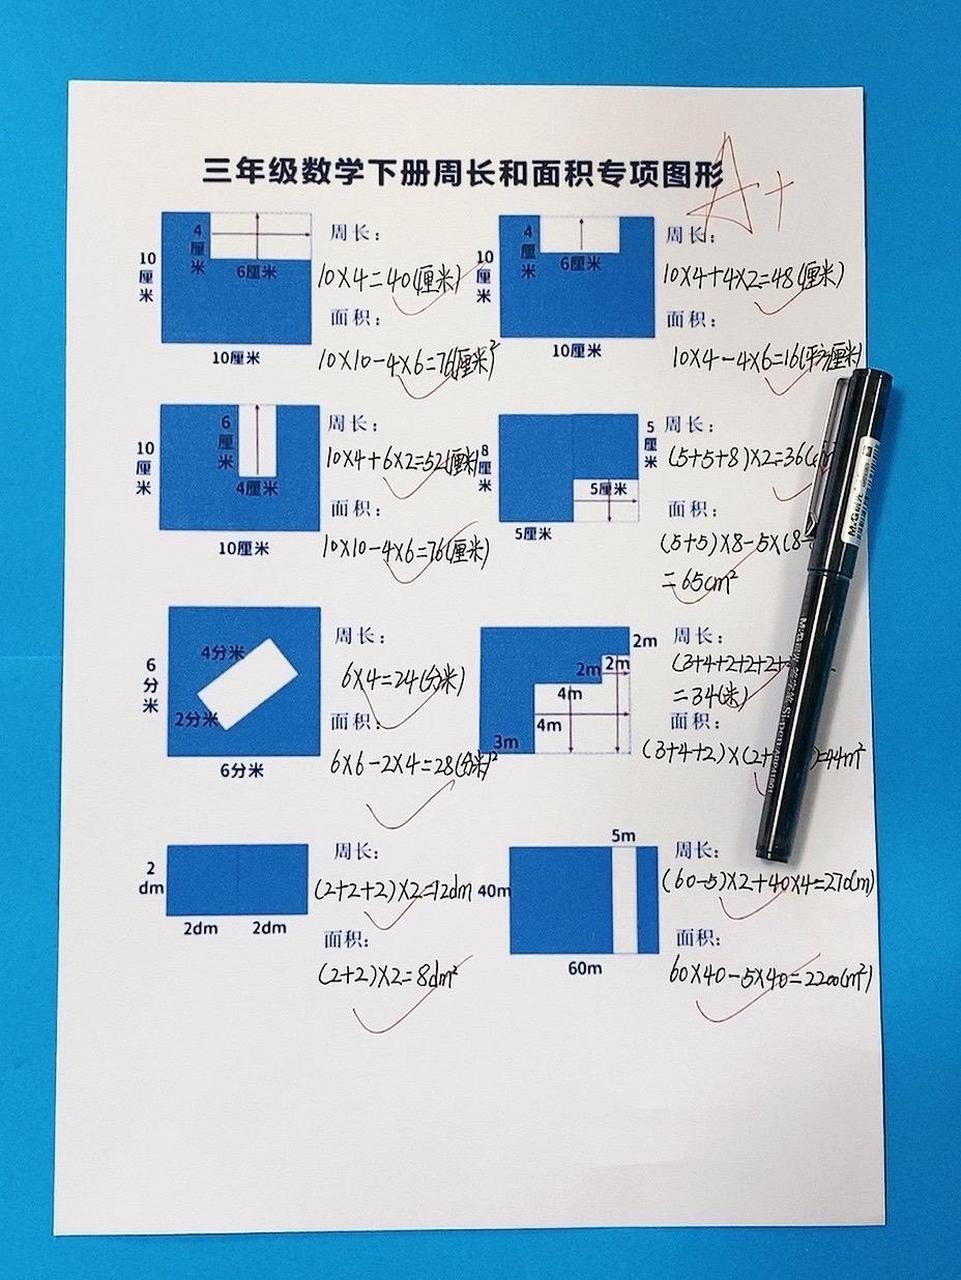 三年级数学下册周长和面积专项图形
A+
4厘米
6厘米
10厘米
10厘米
周长:
10×4=40(厘米)
面积:
10×10-4×6=76(厘米)²
4厘米
6厘米
10厘米
10厘米
周长:
10×4+4×2=48(厘米)
面积:
10×4-4×6=16(平方厘米)
6厘米
4厘米
10厘米
10厘米
周长:
10×4+6×2=52(厘米)
面积:
10×10-4×6=76(厘米)
8厘米
5厘米
5厘米
5厘米
周长:
(5+5+8)×2=36(
面积:
(5+5)×8-5×(8-
=65cm²
4分米
2分米
6分米
6分米
周长:
6×4=24(分米)
面积:
6×6-2×4=28(分米)²
2m
2m
2m
4m
4m
3m
周长:
(3+4+2+2+2+
=34(米)
面积:
(3+4+2)×(2+
)=44m²
2dm
2dm
2dm
周长:
(2+2+2)×2=12dm
面积:
(2+2)×2=8dm²
5m
40m
60m
周长:
(60-5)×2+40×4=270(m)
面积:
60×40-5×40=2200(m²)
M&G